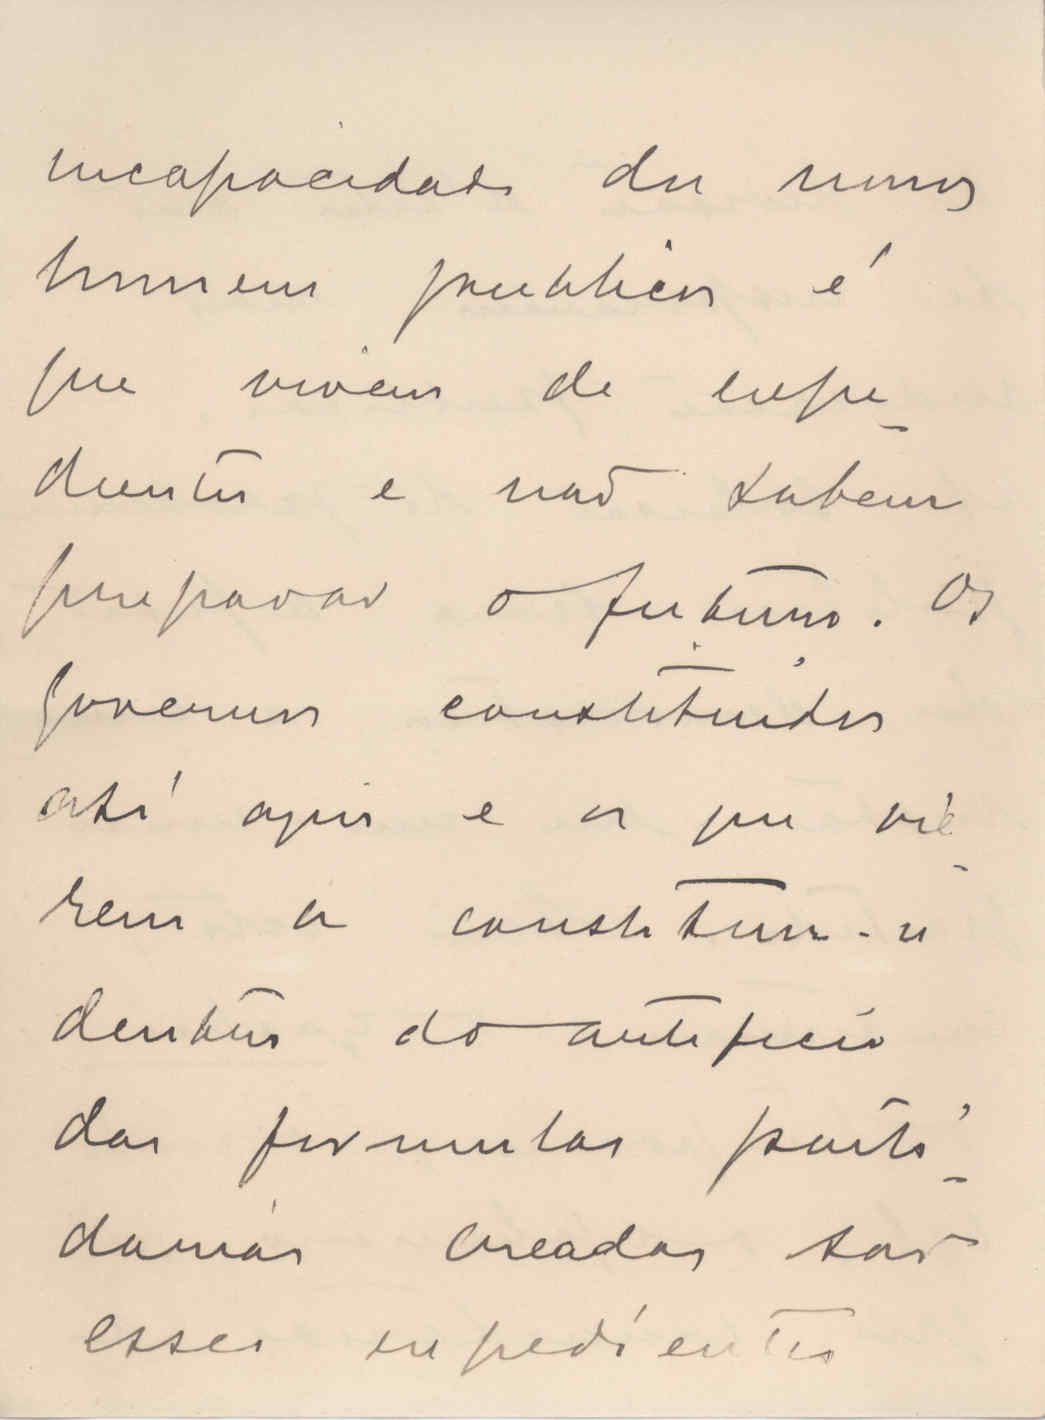 incapacidade dos nossos
homens publicos é
que vivem de expe-
dientes e não sabem
preparar o futuro. Os
governos constituidos
até aqui e os que vie-
rem a constituir-se
dentro do artificio
das formulas parti-
darias creadas são
esses expedientes